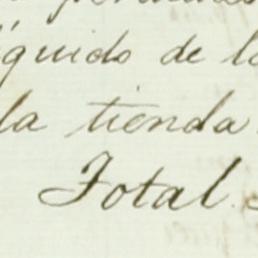 quido de l
la tienda
Total